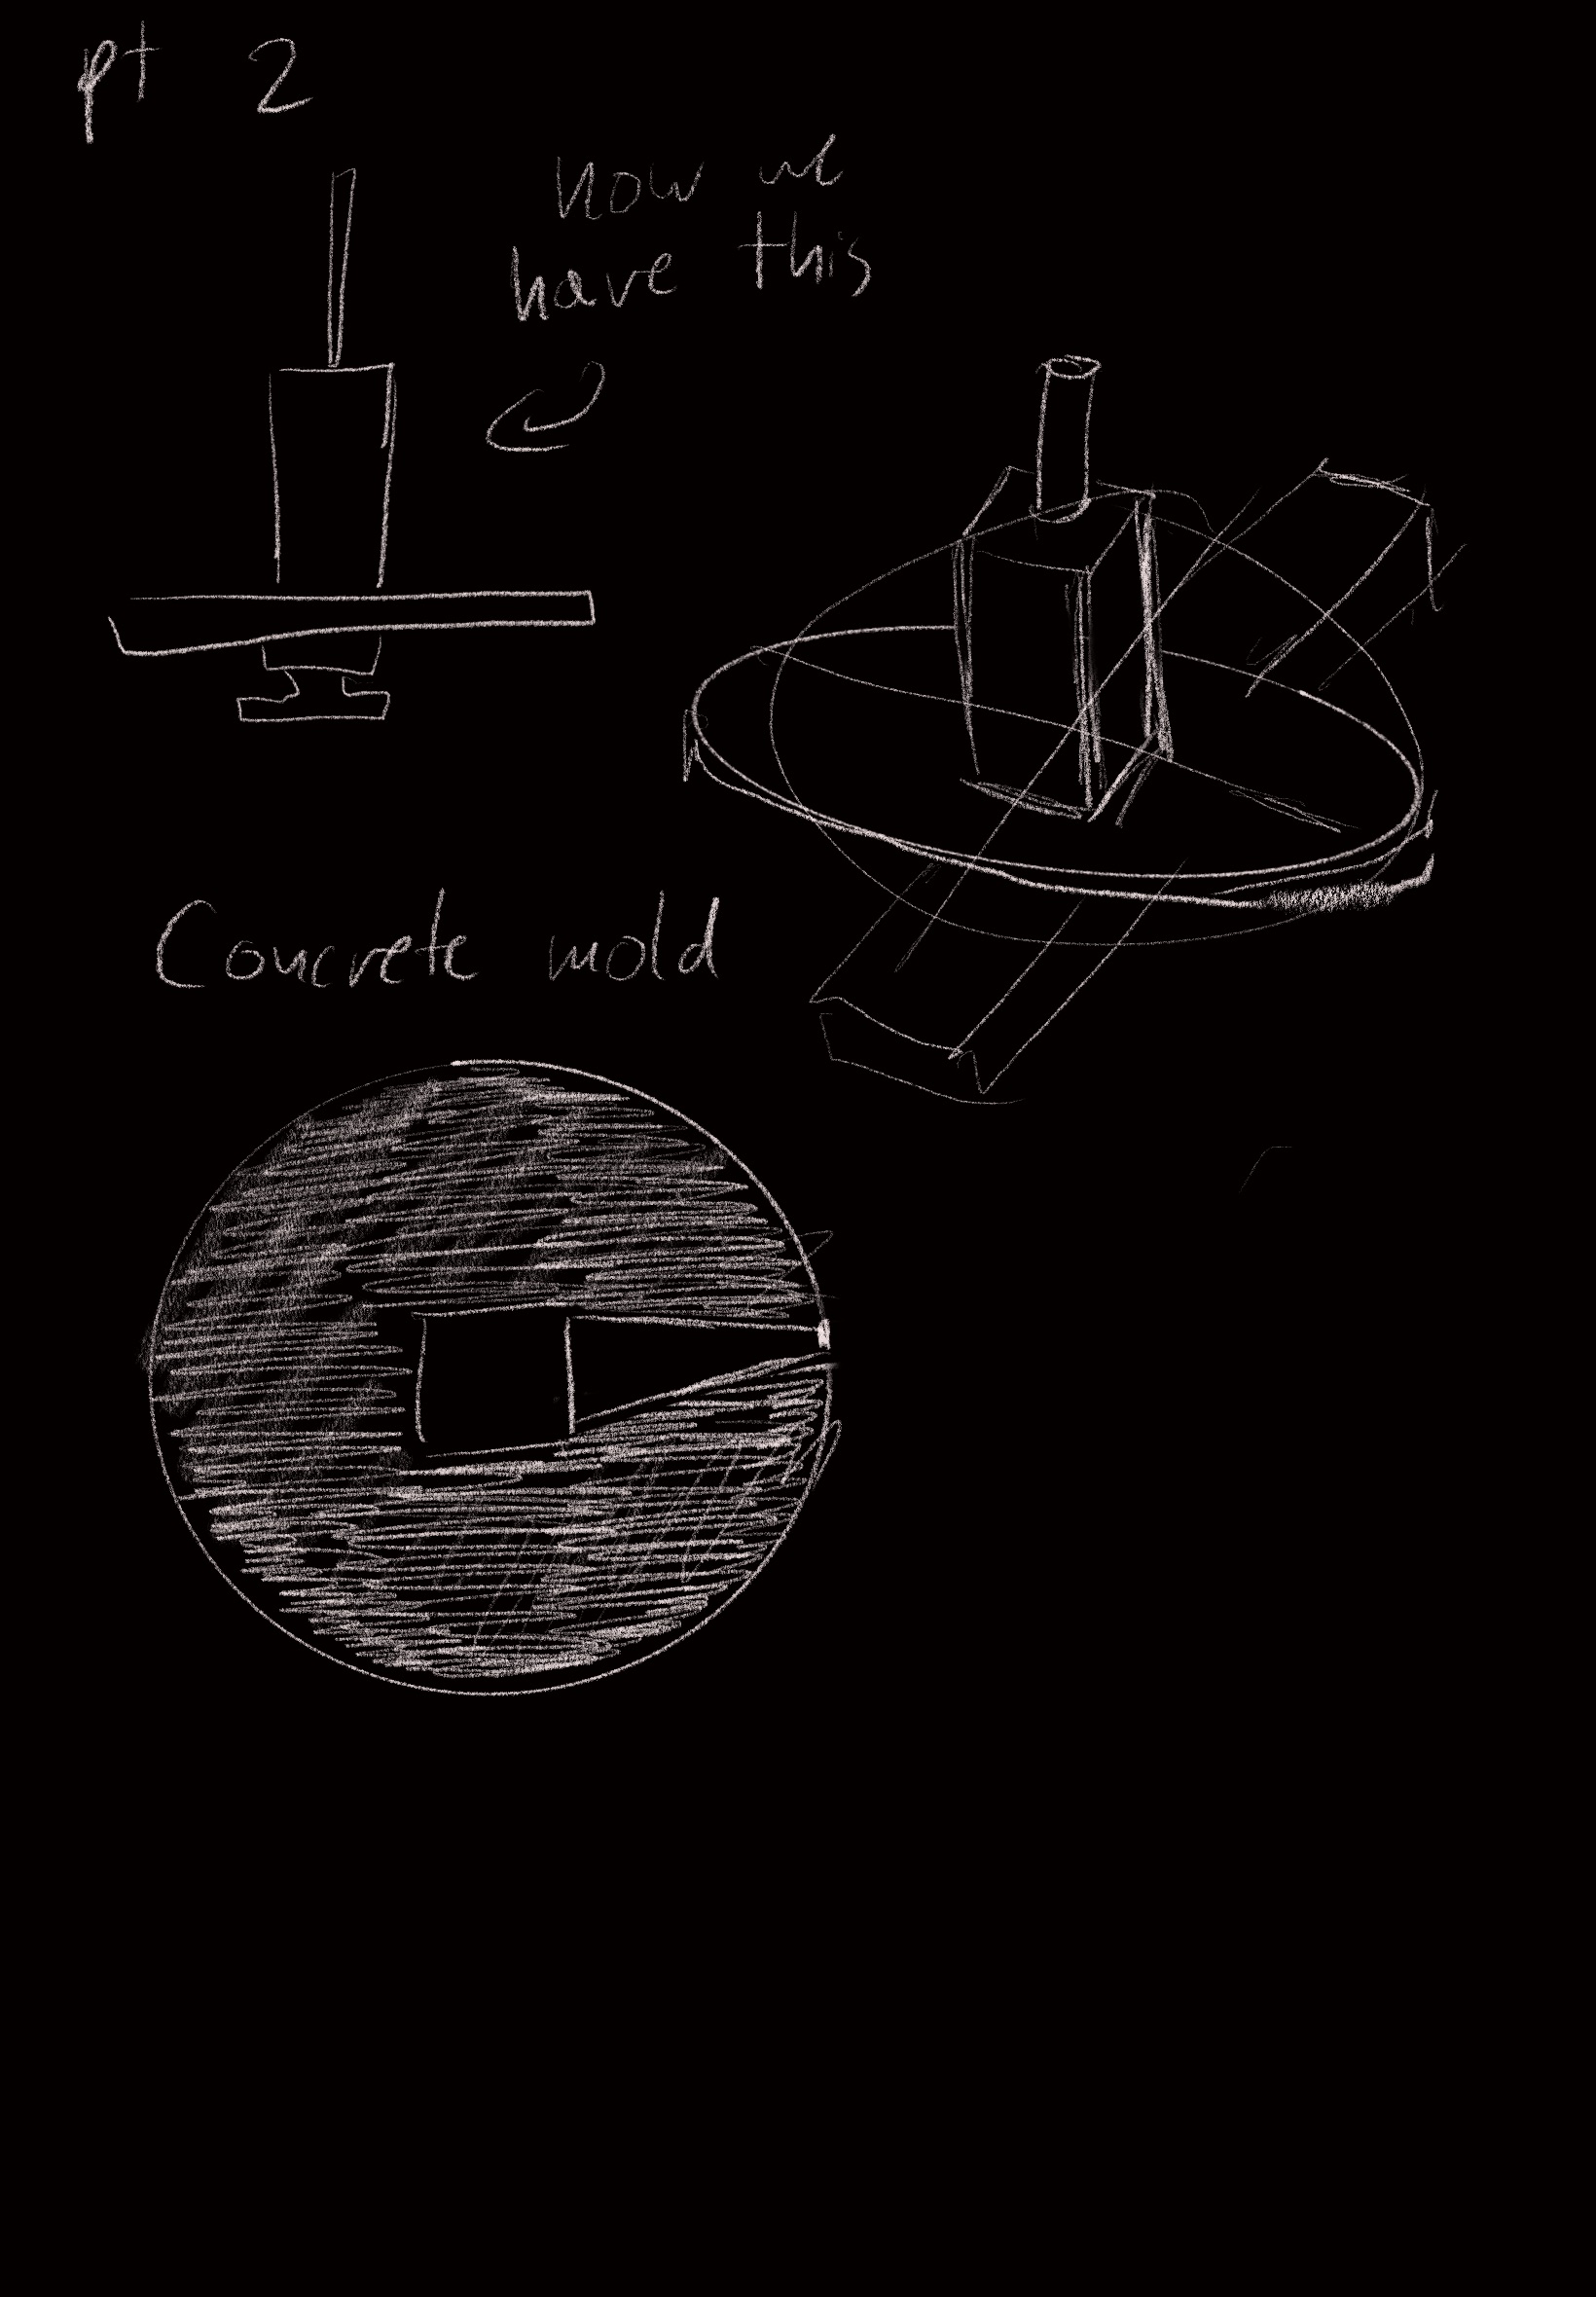 pt 2
now we
have this
Concrete mold